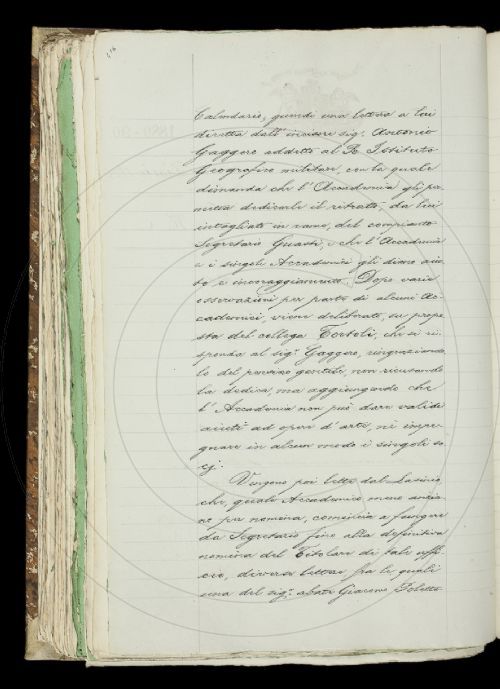 Calendario, quindi una lettera a lui
diretta dall'incisore sig. Antonio
Gaggero addetto al R. Istituto
Geografico militare, con la quale
dimanda che l'Accademia gli per
metta dedicarle il ritratto, da lui
intagliato in rame, del compianto
Segretario Guasti, e che l'Accademia
e i singoli Accademici gli diano aiu
to e incoraggiamento. Dopo varie
osservazioni per parte di alcuni Ac-
cademici, viene deliberato, su propo
sta del collega Tortoli, che si ri-
sponda al sigr. Gaggero, ringraziando
lo del pensiero gentile, non ricusando
la dedica, ma aggiungendo che
l'Accademia non può dare validi
aiuti ad opere d'arte, nè impe-
gnare in alcun modo i singoli so
cj.
Vengono poi lette dal
che, quale Accademico meno anzia
no per nomina, comincia a fungere
da Segretario fino alla definitiva
nomina del Titolare di tale uffi
cio, diverse lettere fra le quali
una del sigr. abate Giacomo Poletto